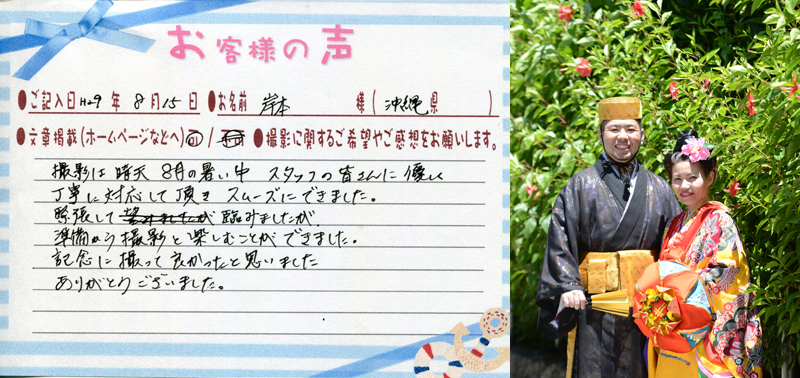 お客様の声
●ご記入日 H29 年 8 月 15 日 ●お名前 岸本 様 ( 沖縄 県 )
●文章掲載(ホームページなどへ) 可 / ●撮影に関するご希望やご感想をお願いします。
撮影は 晴天 8月の暑い中 スタッフの皆さんに 優しく
丁寧に対応して頂き スムーズにできました。
緊張して 臨みましたが
準備から撮影と楽しむことができました。
記念に撮って良かったと思いました
ありがとうございました。